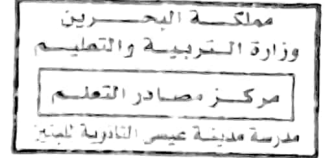 مملكة البحرين
وزارة التربية والتعليم
مركز مصادر التعلم
مدرسة مدينة عيسى الثانوية للبنين